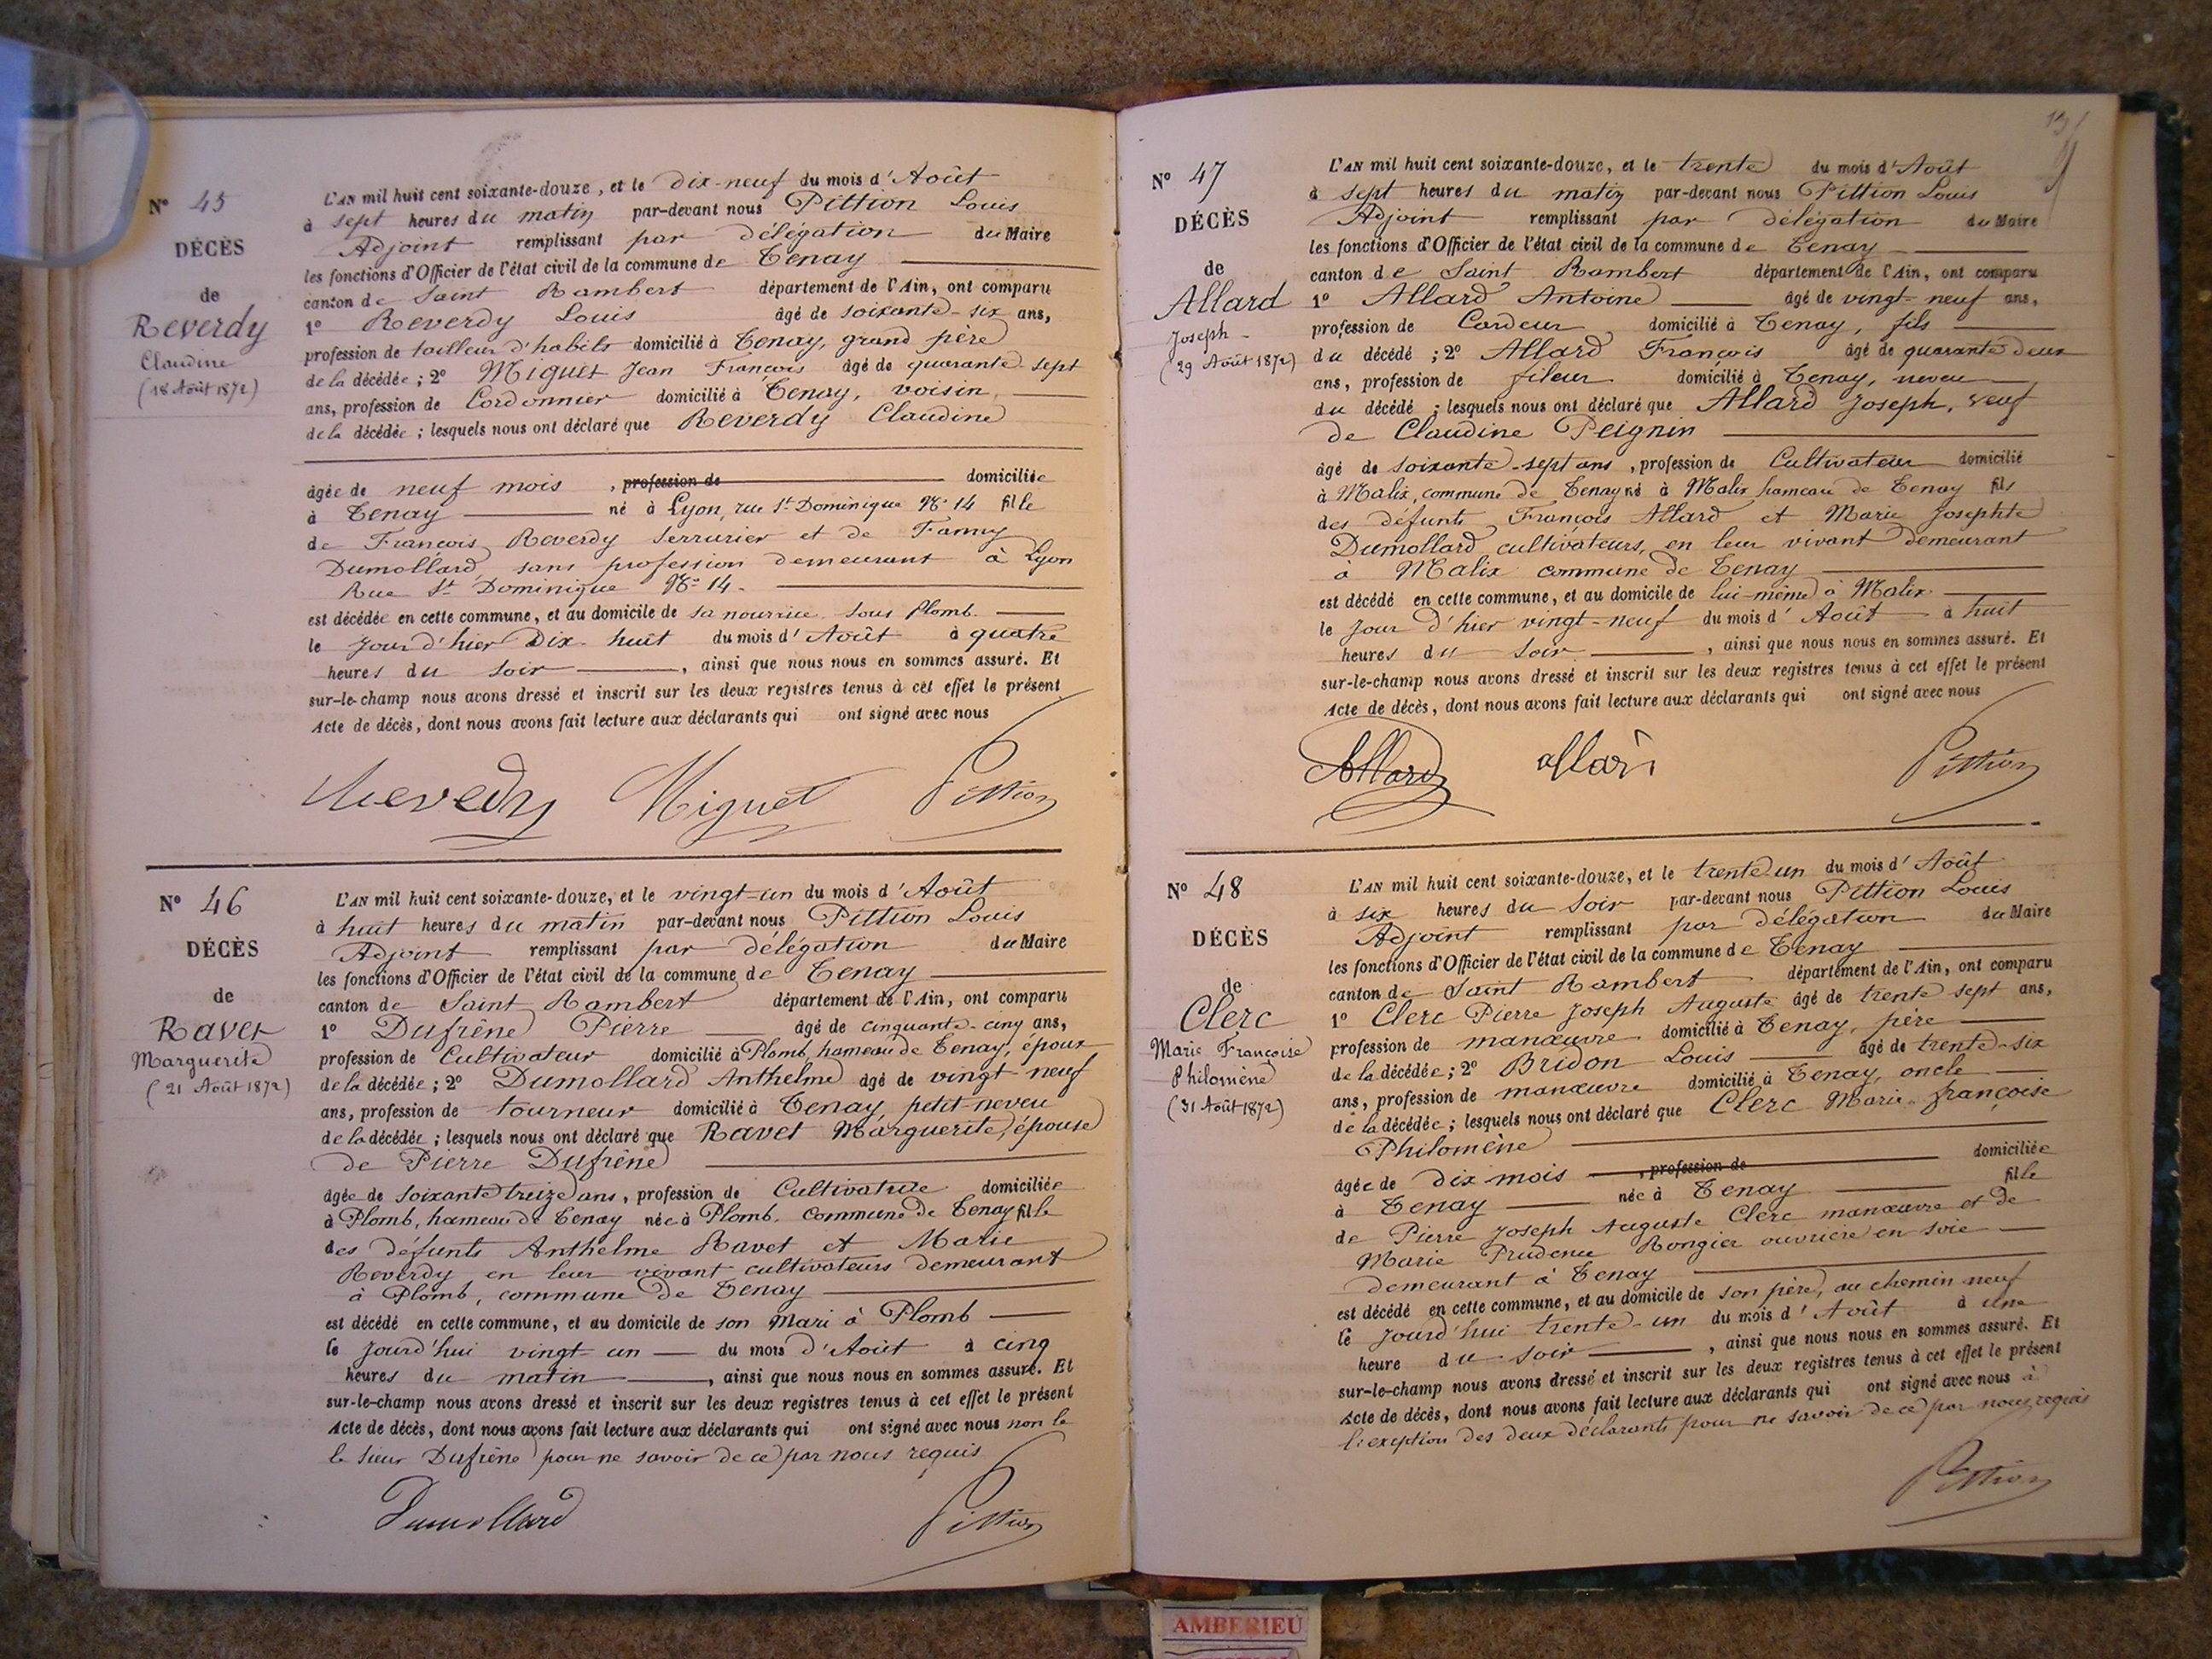 Nº 45
DÉCÈS
de
Reverdy
Claudine
(18 Août 1872)
L'AN mil huit cent soixante-douze, et le dix-neuf du mois d'Août
à sept heures du matin par-devant nous Pittion Louis
Adjoint remplissant par délégation du Maire
les fonctions d'Officier de l'état civil de la commune de Tenay
canton de Saint Rambert département de l'Ain, ont comparu
1º Reverdy Louis âgé de soixante-six ans,
profession de tailleur d'habits domicilié à Tenay, grand père
de la décédée ; 2º Miguet Jean François âgé de quarante-sept
ans, profession de Cordonnier domicilié à Tenay, voisin
de la décédée ; lesquels nous ont déclaré que Reverdy Claudine
âgée de neuf mois , profession de domiciliée
à Tenay né à Lyon, rue St Dominique Nº 14 fille
de François Reverdy Serrurier et de Fanny
Dumollard sans profession demeurant à Lyon
Rue St Dominique Nº 14.
est décédée en cette commune, et au domicile de sa nourrice sous Plomb.
le jour d'hier Dix huit du mois d'Août à quatre
heures du soir , ainsi que nous nous en sommes assuré. Et
sur-le-champ nous avons dressé et inscrit sur les deux registres tenus à cet effet le présent
Acte de décès, dont nous avons fait lecture aux déclarants qui ont signé avec nous
Reverdy Miguet Pittion
Nº 46
DÉCÈS
de
Ravet
Marguerite
(21 Août 1872)
L'AN mil huit cent soixante-douze, et le vingt-un du mois d'Août
à huit heures du matin par-devant nous Pittion Louis
Adjoint remplissant par délégation du Maire
les fonctions d'Officier de l'état civil de la commune de Tenay
canton de Saint Rambert département de l'Ain, ont comparu
1º Dufrêne Pierre âgé de cinquante-cinq ans,
profession de Cultivateur domicilié à Plomb, hameau de Tenay, époux
de la décédée ; 2º Dumollard Anthelme âgé de vingt-neuf
ans, profession de tourneur domicilié à Tenay, petit-neveu
de la décédée ; lesquels nous ont déclaré que Ravet Marguerite, épouse
de Pierre Dufrêne
âgée de soixante treize ans, profession de Cultivatrice domiciliée
à Plomb, hameau de Tenay née à Plomb, commune de Tenay fille
des défunts Anthelme Ravet et Marie
Reverdy en leur vivant cultivateurs demeurant
à Plomb, commune de Tenay
est décédé en cette commune, et au domicile de son Mari à Plomb
le jourd'hui vingt-un du mois d'Août à cinq
heures du matin , ainsi que nous nous en sommes assuré. Et
sur-le-champ nous avons dressé et inscrit sur les deux registres tenus à cet effet le présent
Acte de décès, dont nous avons fait lecture aux déclarants qui ont signé avec nous non le
le sieur Dufrêne pour ne savoir de ce par nous requis
Dumollard Pittion
Nº 47
DÉCÈS
de
Allard
Joseph
(29 Août 1872)
L'AN mil huit cent soixante-douze, et le trente du mois d'Août
à sept heures du matin par-devant nous Pittion Louis
Adjoint remplissant par délégation du Maire
les fonctions d'Officier de l'état civil de la commune de Tenay
canton de Saint Rambert département de l'Ain, ont comparu
1º Allard Antoine âgé de vingt-neuf ans,
profession de Cardeur domicilié à Tenay, fils
du décédé ; 2º Allard François âgé de quarante deux
ans, profession de fileur domicilié à Tenay, neveu
du décédé ; lesquels nous ont déclaré que Allard Joseph, veuf
de Claudine Peignin
âgé de soixante-sept ans , profession de Cultivateur domicilié
à Malix, commune de Tenay né à Malix hameau de Tenay fils
des défunts François Allard et Marie Josephte
Dumollard cultivateurs, en leur vivant demeurant
à Malix commune de Tenay
est décédé en cette commune, et au domicile de lui-même à Malix
le jour d'hier vingt-neuf du mois d'Août à huit
heures du soir , ainsi que nous nous en sommes assuré. Et
sur-le-champ nous avons dressé et inscrit sur les deux registres tenus à cet effet le présent
Acte de décès, dont nous avons fait lecture aux déclarants qui ont signé avec nous
Allard allard Pittion
Nº 48
DÉCÈS
de
Clerc
Marie Françoise
Philomène
(31 Août 1872)
L'AN mil huit cent soixante-douze, et le trente un du mois d'Août
à six heures du soir par-devant nous Pittion Louis
Adjoint remplissant par délégation du Maire
les fonctions d'Officier de l'état civil de la commune de Tenay
canton de Saint Rambert département de l'Ain, ont comparu
1º Clerc Pierre Joseph Auguste âgé de trente sept ans,
profession de manœuvre domicilié à Tenay, père
de la décédée ; 2º Bridon Louis âgé de trente-six
ans, profession de manœuvre domicilié à Tenay, oncle
de la décédée ; lesquels nous ont déclaré que Clerc Marie-Françoise
Philomène
âgée de dix mois , profession de domiciliée
à Tenay née à Tenay fille
de Pierre Joseph Auguste Clerc manœuvre et de
Marie Prudence Rongier ouvrière en soie
demeurant à Tenay
est décédé en cette commune, et au domicile de son père, au chemin neuf
le jourd'hui trente-un du mois d'Août à une
heure du soir , ainsi que nous nous en sommes assuré. Et
sur-le-champ nous avons dressé et inscrit sur les deux registres tenus à cet effet le présent
Acte de décès, dont nous avons fait lecture aux déclarants qui ont signé avec nous à
l'exeption des deux déclarants pour ne savoir de ce par nous requis
Pittion
AMBERIEU